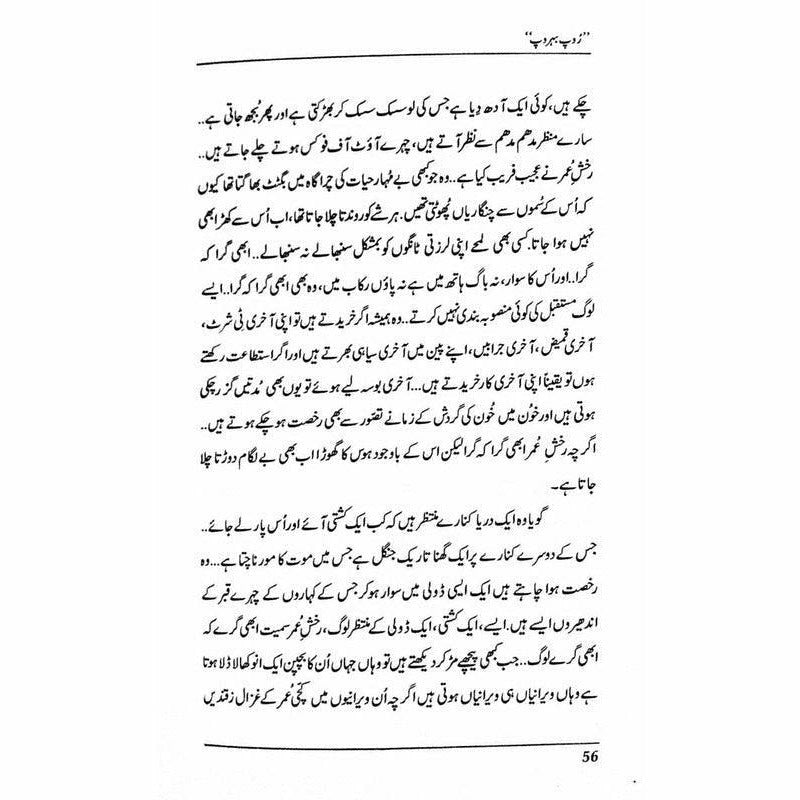 ”رُوپ بہروپ“
چکے ہیں، کوئی ایک آدھ دِیا ہے جس کی لو سسک سسک کر بھڑکتی ہے اور پھر بُجھ جاتی ہے..
سارے منظر مدھم مدھم سے نظر آتے ہیں، چہرے آؤٹ آف فوکس ہوتے چلے جاتے ہیں..
رخشِ عُمر نے عجیب فریب کیا ہے.. وہ جو کبھی بے مُہار حیات کی چراگاہ میں بگٹٹ بھاگتا تھا کیوں
کہ اُس کے سُموں سے چنگاریاں پُھوٹتی تھیں. ہر شے کو روندتا چلا جاتا تھا، اب اُس سے کھڑا بھی
نہیں ہوا جاتا. کسی بھی لمحے اپنی لرزتی ٹانگوں کو بمشکل سنبھالے نہ سنبھالے.. ابھی گرا کہ
گرا.. اور اُس کا سوار، نہ باگ ہاتھ میں ہے نہ پاؤں رکاب میں، وہ بھی ابھی گرا کہ گرا.. ایسے
لوگ مستقبل کی کوئی منصوبہ بندی نہیں کرتے.. وہ ہمیشہ اگر خریدتے ہیں تو اپنی آخری ٹِی شرٹ،
آخری قمیض، آخری جرابیں، اپنے پین میں آخری سیاہی بھرتے ہیں اور اگر استطاعت رکھتے
ہوں تو یقیناً اپنی آخری کار خریدتے ہیں... آخری بوسہ لیے ہوئے تو یوں بھی مُدتیں گزر چکی
ہوتی ہیں اور خوُن میں خُون کی گردش کے زمانے تصّور سے بھی رخصت ہو چکے ہوتے ہیں..
اگرچہ رخشِ عُمر ابھی گرا کہ گرا لیکن اس کے باوجود ہوس کا گھوڑا اب بھی بے لگام دوڑتا چلا
جاتا ہے۔
گویا وہ ایک دریا کنارے منتظر ہیں کہ کب ایک کشتی آئے اور اُس پار لے جائے..
جس کے دوسرے کنارے پر ایک گھنا تاریک جنگل ہے جس میں موت کا مور ناچتا ہے... وہ
رخصت ہوا چاہتے ہیں ایک ایسی ڈولی میں سوار ہو کر جس کے کہاروں کے چہرے قبر کے
اندھیروں ایسے ہیں. ایسے، ایک کشتی، ایک ڈولی کے منتظر لوگ، رخشِ عُمر سمیت ابھی گرے کہ
ابھی گرے لوگ.. جب کبھی پیچھے مڑ کر دیکھتے ہیں تو وہاں جہاں اُن کا بچپن ایک انوکھا لاڈلا ہوتا
ہے وہاں ویرانیاں ہی ویرانیاں ہوتی ہیں اگرچہ اُن ویرانیوں میں کچّی عُمر کے غزال زقندیں
56